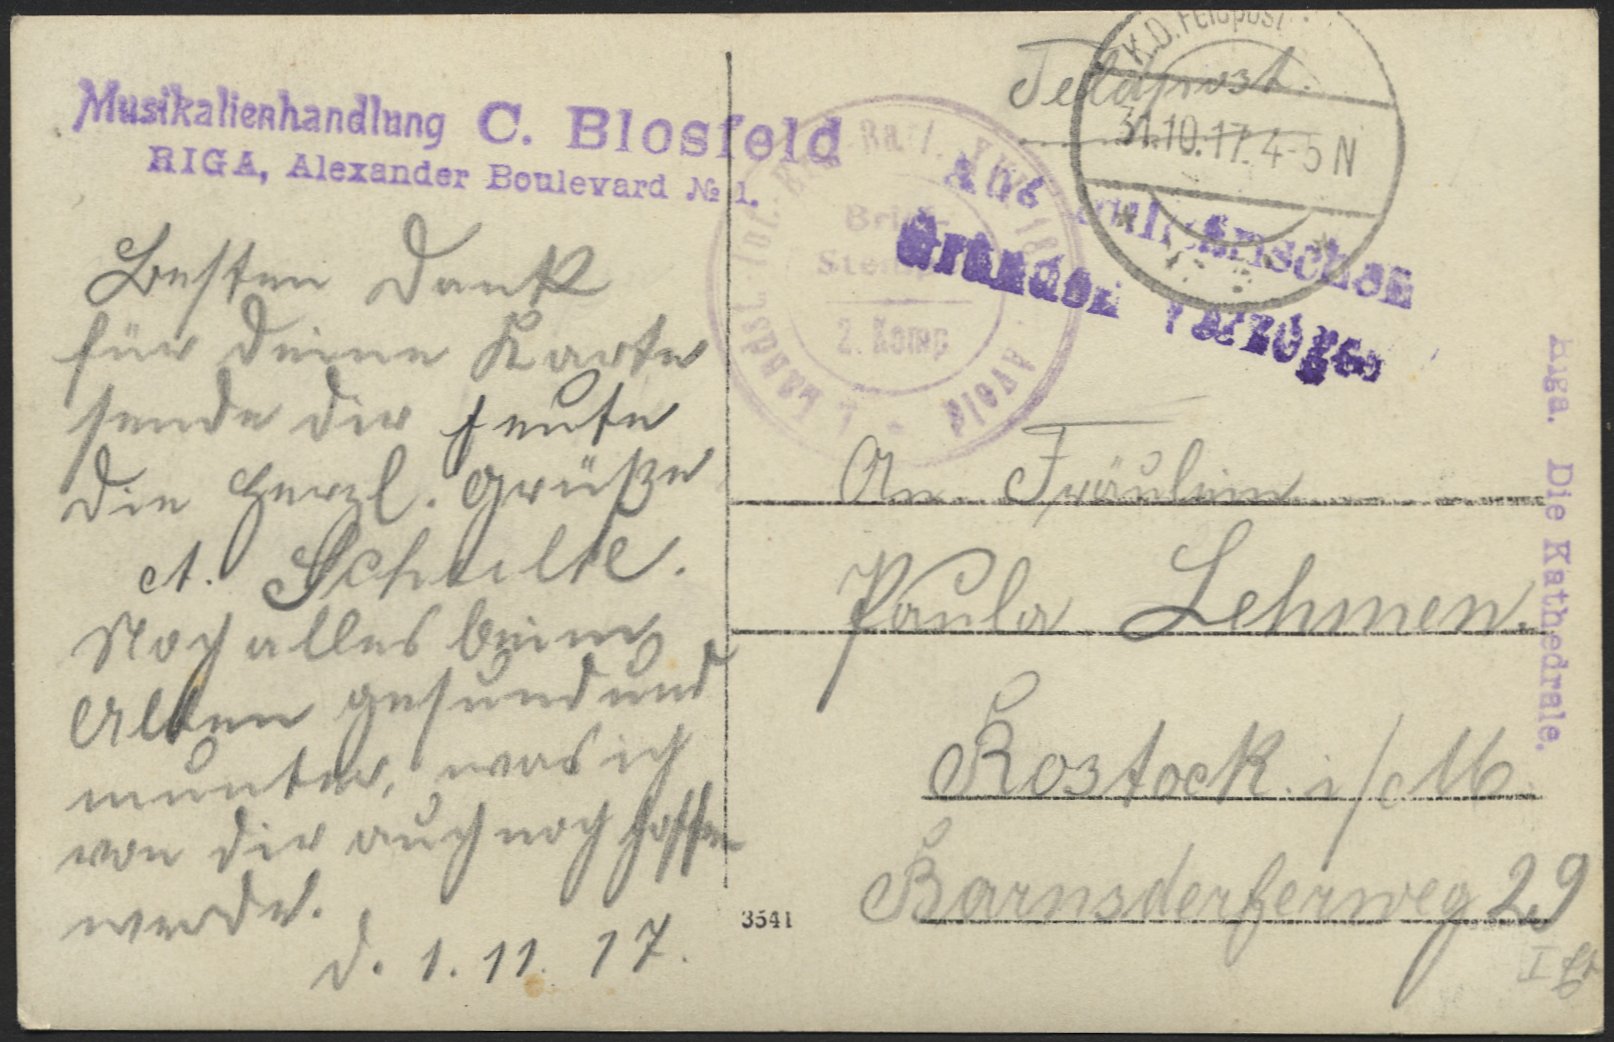 Musikalienhandlung C. Blosfeld
RIGA, Alexander Boulevard № 1.
Besten Dank
für deine Karte
sende dir heute
die herzl. Grüße
A. Schulte.
Noch alles beim
Alten gesund und
munter, was ich
von dir auch noch hoffen
werde.
d. 1. 11. 17.
K.D. Feldpost
31.10.17. 4-5 N
Feldpost.
Aus militärischen
Gründen verzögert
Landst. Inf.
Brief-
Stempel
2. Komp
An Fräulein
Paula Lehmen.
Rostock i/M
Barnsdorferweg 29
I
3541
Riga. Die Kathedrale.